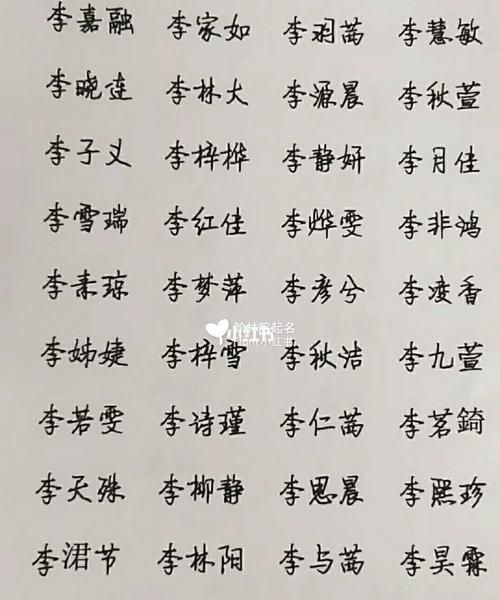 李嘉融 李家如 李羽茜 李慧敏
李晓连 李林大 李源晨 李秋萱
李子义 李梓桦 李静妍 李月佳
李雪瑞 李红佳 李烨雯 李非鸿
李素琼 李梦萍 李彦兮 李凌香
翰林院起名
小红书
小红书
李姊婕 李梓雪 李秋洁 李九萱
李若雯 李诗瑾 李仁茜 李茗錡
李天殊 李柳静 李思晨 李熙珍
李涒节 李林阳 李与茜 李昊霖